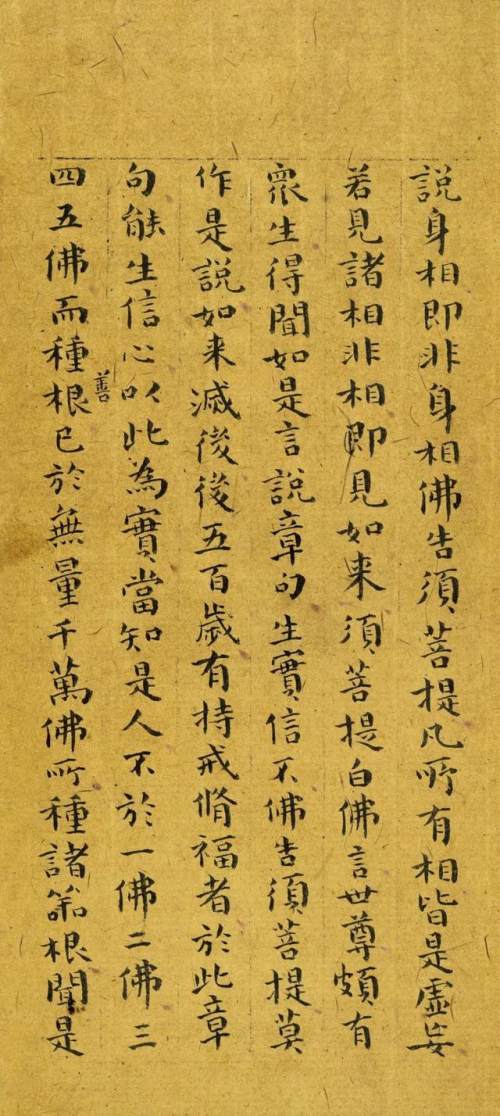 說身相即非身相佛告須菩提凡所有相皆是虛妄
若見諸相非相即見如来須菩提白佛言世尊頗有
衆生得聞如是言說章句生實信不佛告須菩提莫
作是說如来滅後後五百歲有持戒脩福者於此章
句能生信心以此為實當知是人不於一佛二佛三
四五佛而種善根已於無量千萬佛所種諸善根聞是